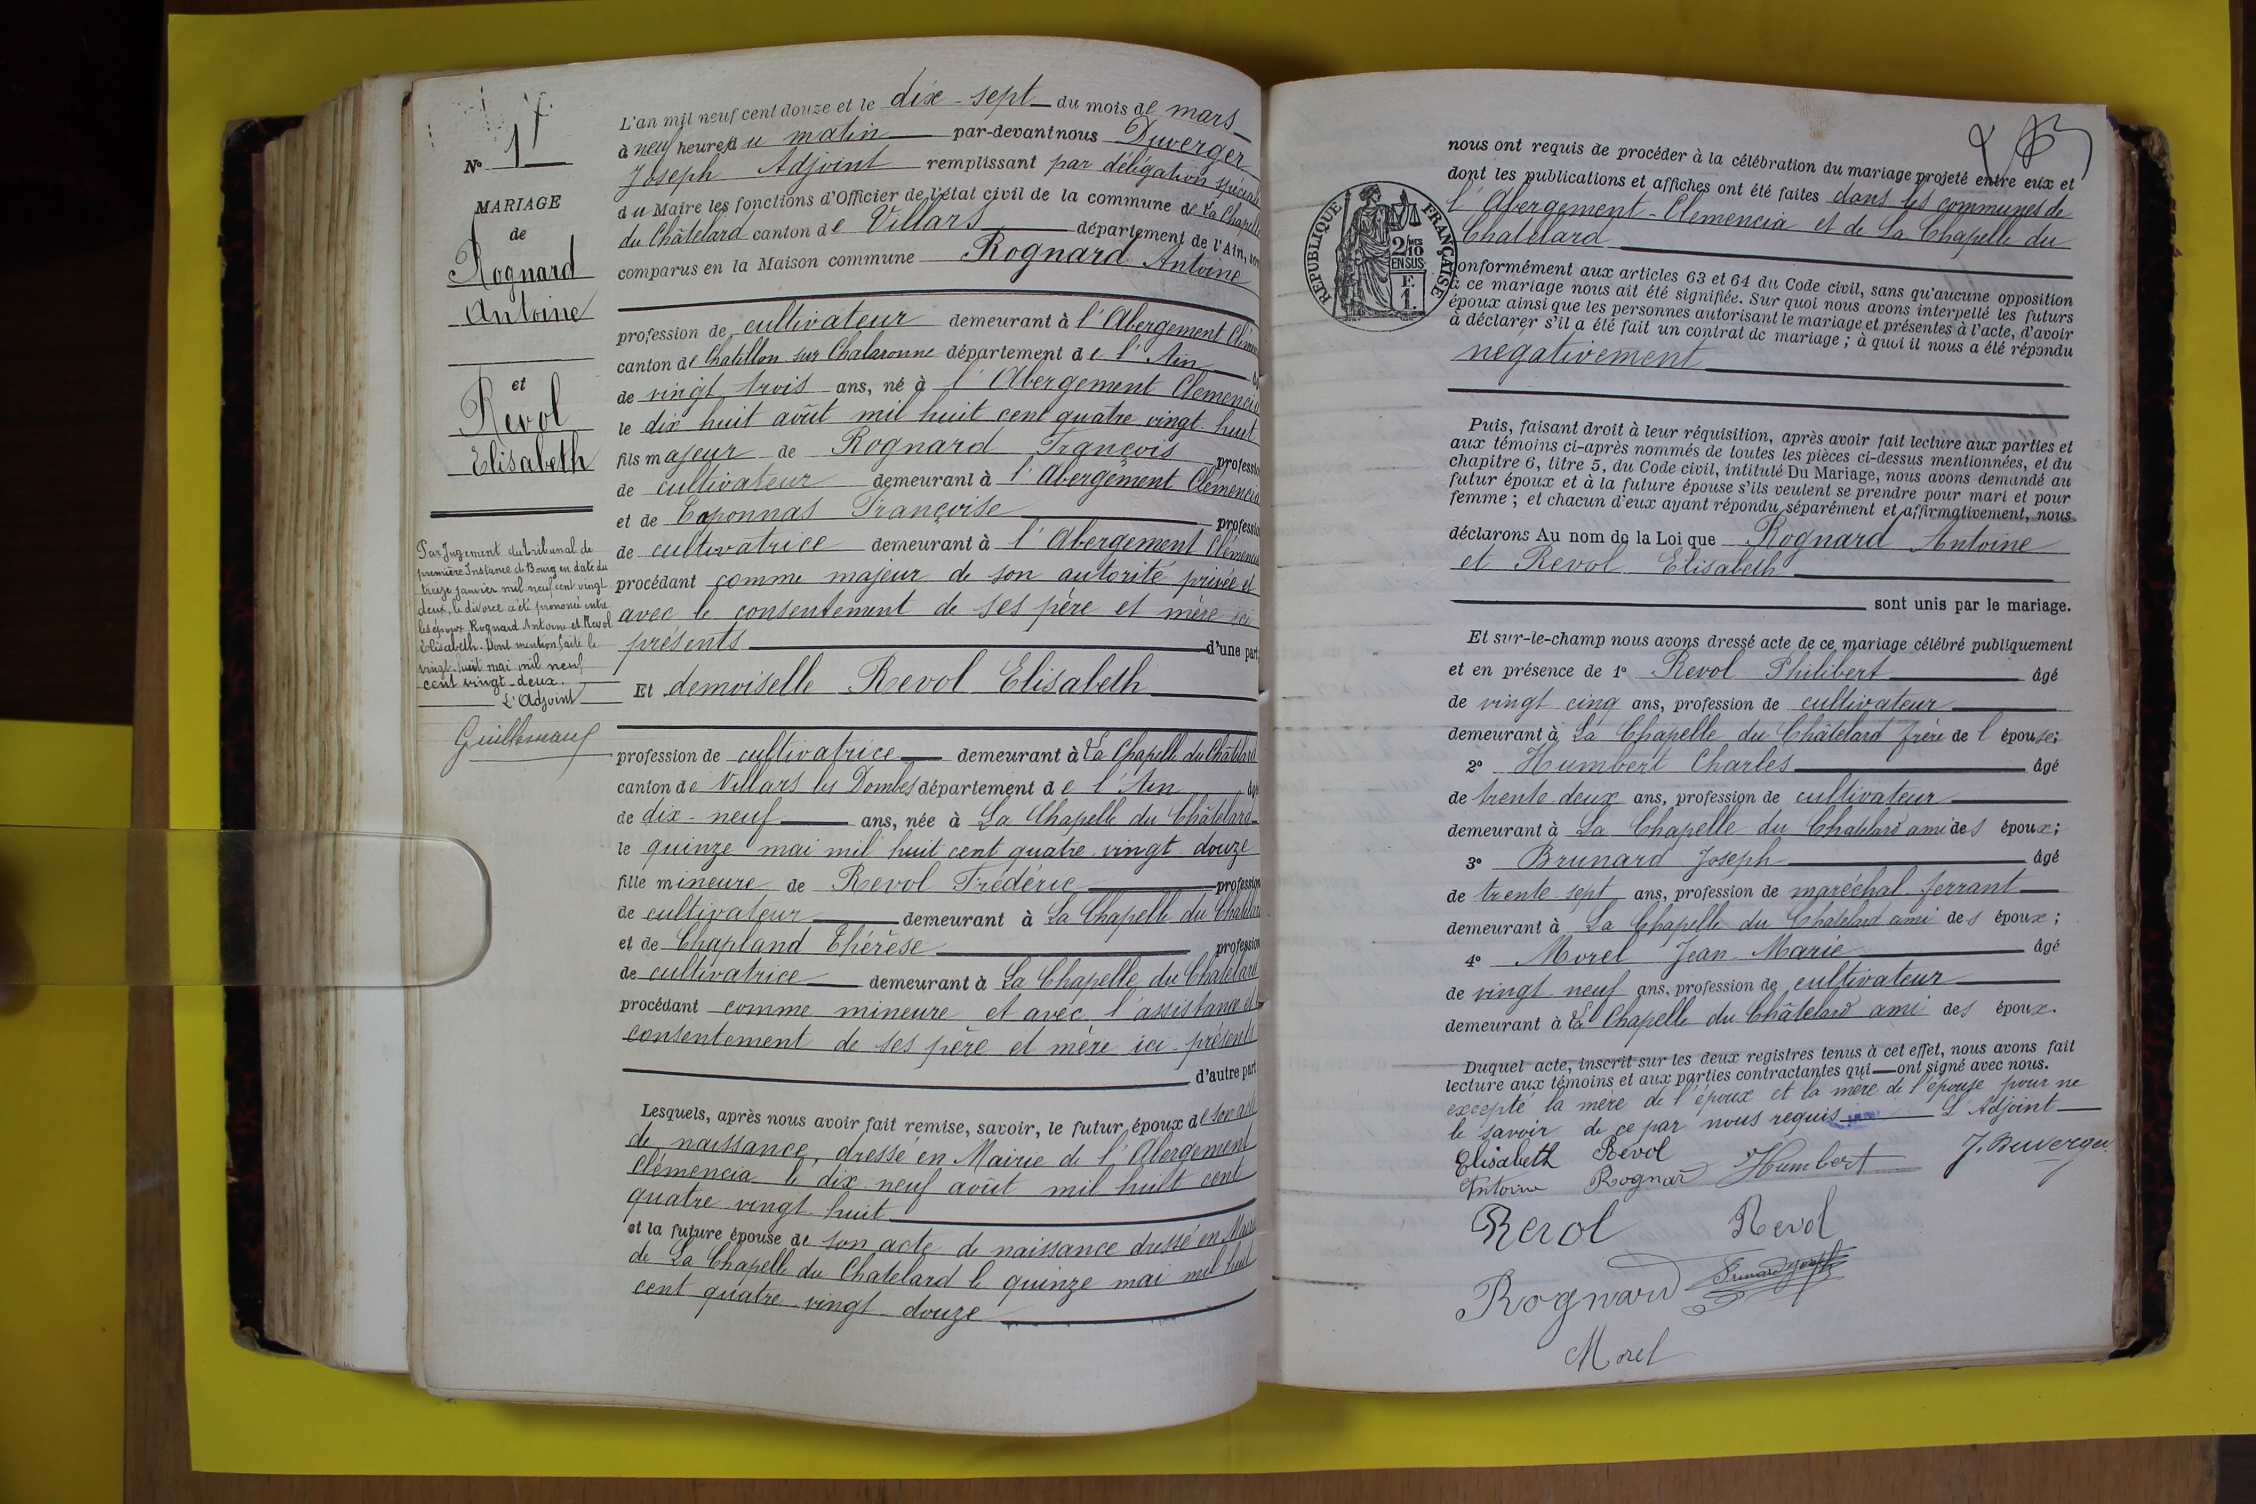 N° 1
MARIAGE
de
Rognard
Antoine
et
Revol
Elisabeth
Par Jugement du tribunal de
première Instance de Bourg en date du
treize janvier mil neuf cent vingt
deux, le divorce a été prononcé entre
les époux Rognard Antoine et Revol
Elisabeth. Dont mention faite le
vingt-huit mai mil neuf
cent vingt-deux.
L'Adjoint
L'an mil neuf cent douze et le dix-sept du mois de mars
à neuf heures du matin par-devant nous Duverger
Joseph Adjoint remplissant par délégation spéciale
du Maire les fonctions d'Officier de l'état civil de la commune de La Chapelle
du Châtelard canton de Villars département de l'Ain, sont
comparus en la Maison commune Rognard Antoine
profession de cultivateur demeurant à l'Abergement Clémen
canton de Chatillon sur Chalaronne département de l'Ain
de vingt trois ans, né à l'Abergement Clémencia
le dix huit août mil huit cent quatre vingt huit
fils majeur de Rognard François profession
de cultivateur demeurant à l'Abergement Clémencia
et de Caponnas Françoise profession
de cultivatrice demeurant à l'Abergement Clémencia
procédant comme majeur de son autorité privée et
avec le consentement de ses père et mère ici
présents d'une part
Et demoiselle Revol Elisabeth
profession de cultivatrice demeurant à La Chapelle du Châtelard
canton de Villars les Dombes département de l'Ain âgé
de dix-neuf ans, née à La Chapelle du Châtelard
le quinze mai mil huit cent quatre vingt douze
fille mineure de Revol Frédéric profession
de cultivateur demeurant à La Chapelle du Chatelard
et de Chapland Thérèse profession
de cultivatrice demeurant à La Chapelle du Chatelard
procédant comme mineure et avec l'assistance et
consentement de ses père et mère ici présents
d'autre part
Lesquels, après nous avoir fait remise, savoir, le futur époux de son acte
de naissance, dressé en Mairie de l'Abergement
Clémencia le dix neuf août mil huit cent
quatre vingt huit
et la future épouse de son acte de naissance dressé en Mairie
de La Chapelle du Chatelard le quinze mai mil huit
cent quatre-vingt douze
nous ont requis de procéder à la célébration du mariage projeté entre eux et
dont les publications et affiches ont été faites dans les communes de
l'Abergement-Clemencia et de La Chapelle du
Chatelard
RÉPUBLIQUE FRANÇAISE
2/10
EN SUS
F.
1.
conformément aux articles 63 et 64 du Code civil, sans qu'aucune opposition
à ce mariage nous ait été signifiée. Sur quoi nous avons interpellé les futurs
époux ainsi que les personnes autorisant le mariage et présentes à l'acte, d'avoir
à déclarer s'il a été fait un contrat de mariage ; à quoi il nous a été répondu
negativement
Puis, faisant droit à leur réquisition, après avoir fait lecture aux parties et
aux témoins ci-après nommés de toutes les pièces ci-dessus mentionnées, et du
chapitre 6, titre 5, du Code civil, intitulé Du Mariage, nous avons demandé au
futur époux et à la future épouse s'ils veulent se prendre pour mari et pour
femme ; et chacun d'eux ayant répondu séparément et affirmativement, nous
déclarons Au nom de la Loi que Rognard Antoine
et Revol Elisabeth
sont unis par le mariage.
Et sur-le-champ nous avons dressé acte de ce mariage célébré publiquement
et en présence de 1° Revol Philibert âgé
de vingt cinq ans, profession de cultivateur
demeurant à La Chapelle du Châtelard frère de l'épouse;
2° Humbert Charles âgé
de trente deux ans, profession de cultivateur
demeurant à La Chapelle du Chatelard ami des époux;
3° Brunard Joseph âgé
de trente sept ans, profession de maréchal ferrant
demeurant à La Chapelle du Chatelard ami des époux;
4° Morel Jean Marie âgé
de vingt-neuf ans, profession de cultivateur
demeurant à La Chapelle du Châtelard ami des époux.
Duquel acte, inscrit sur les deux registres tenus à cet effet, nous avons fait
lecture aux témoins et aux parties contractantes qui ont signé avec nous.
excepté la mère de l'époux et la mère de l'épouse pour ne
le savoir de ce par nous requis L'Adjoint
Elisabeth Revol
Antoine Rognard Humbert J. Duverger
Revol Revol
Rognard Brunard Joseph
Morel